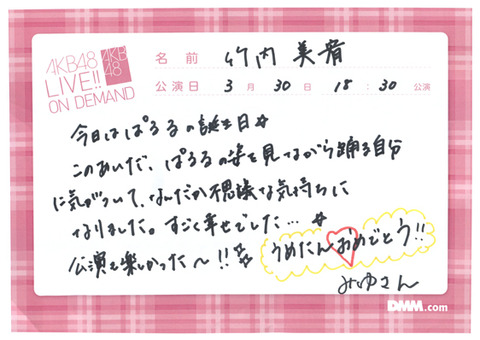 AKB48
LIVE!!
ON DEMAND
AKB
48
名前 竹内美宥
公演日 3月30日 18:30公演
今日はぱるるの誕生日☆
このあいだ、ぱるるの姿を見ながら踊る自分
に気がついて、なんだか不思議な気持ちに
なりました。すごく幸せでした…☆
公演も楽しかった〜!!
うめたんおめでとう!!
みゆさん
DMM.com